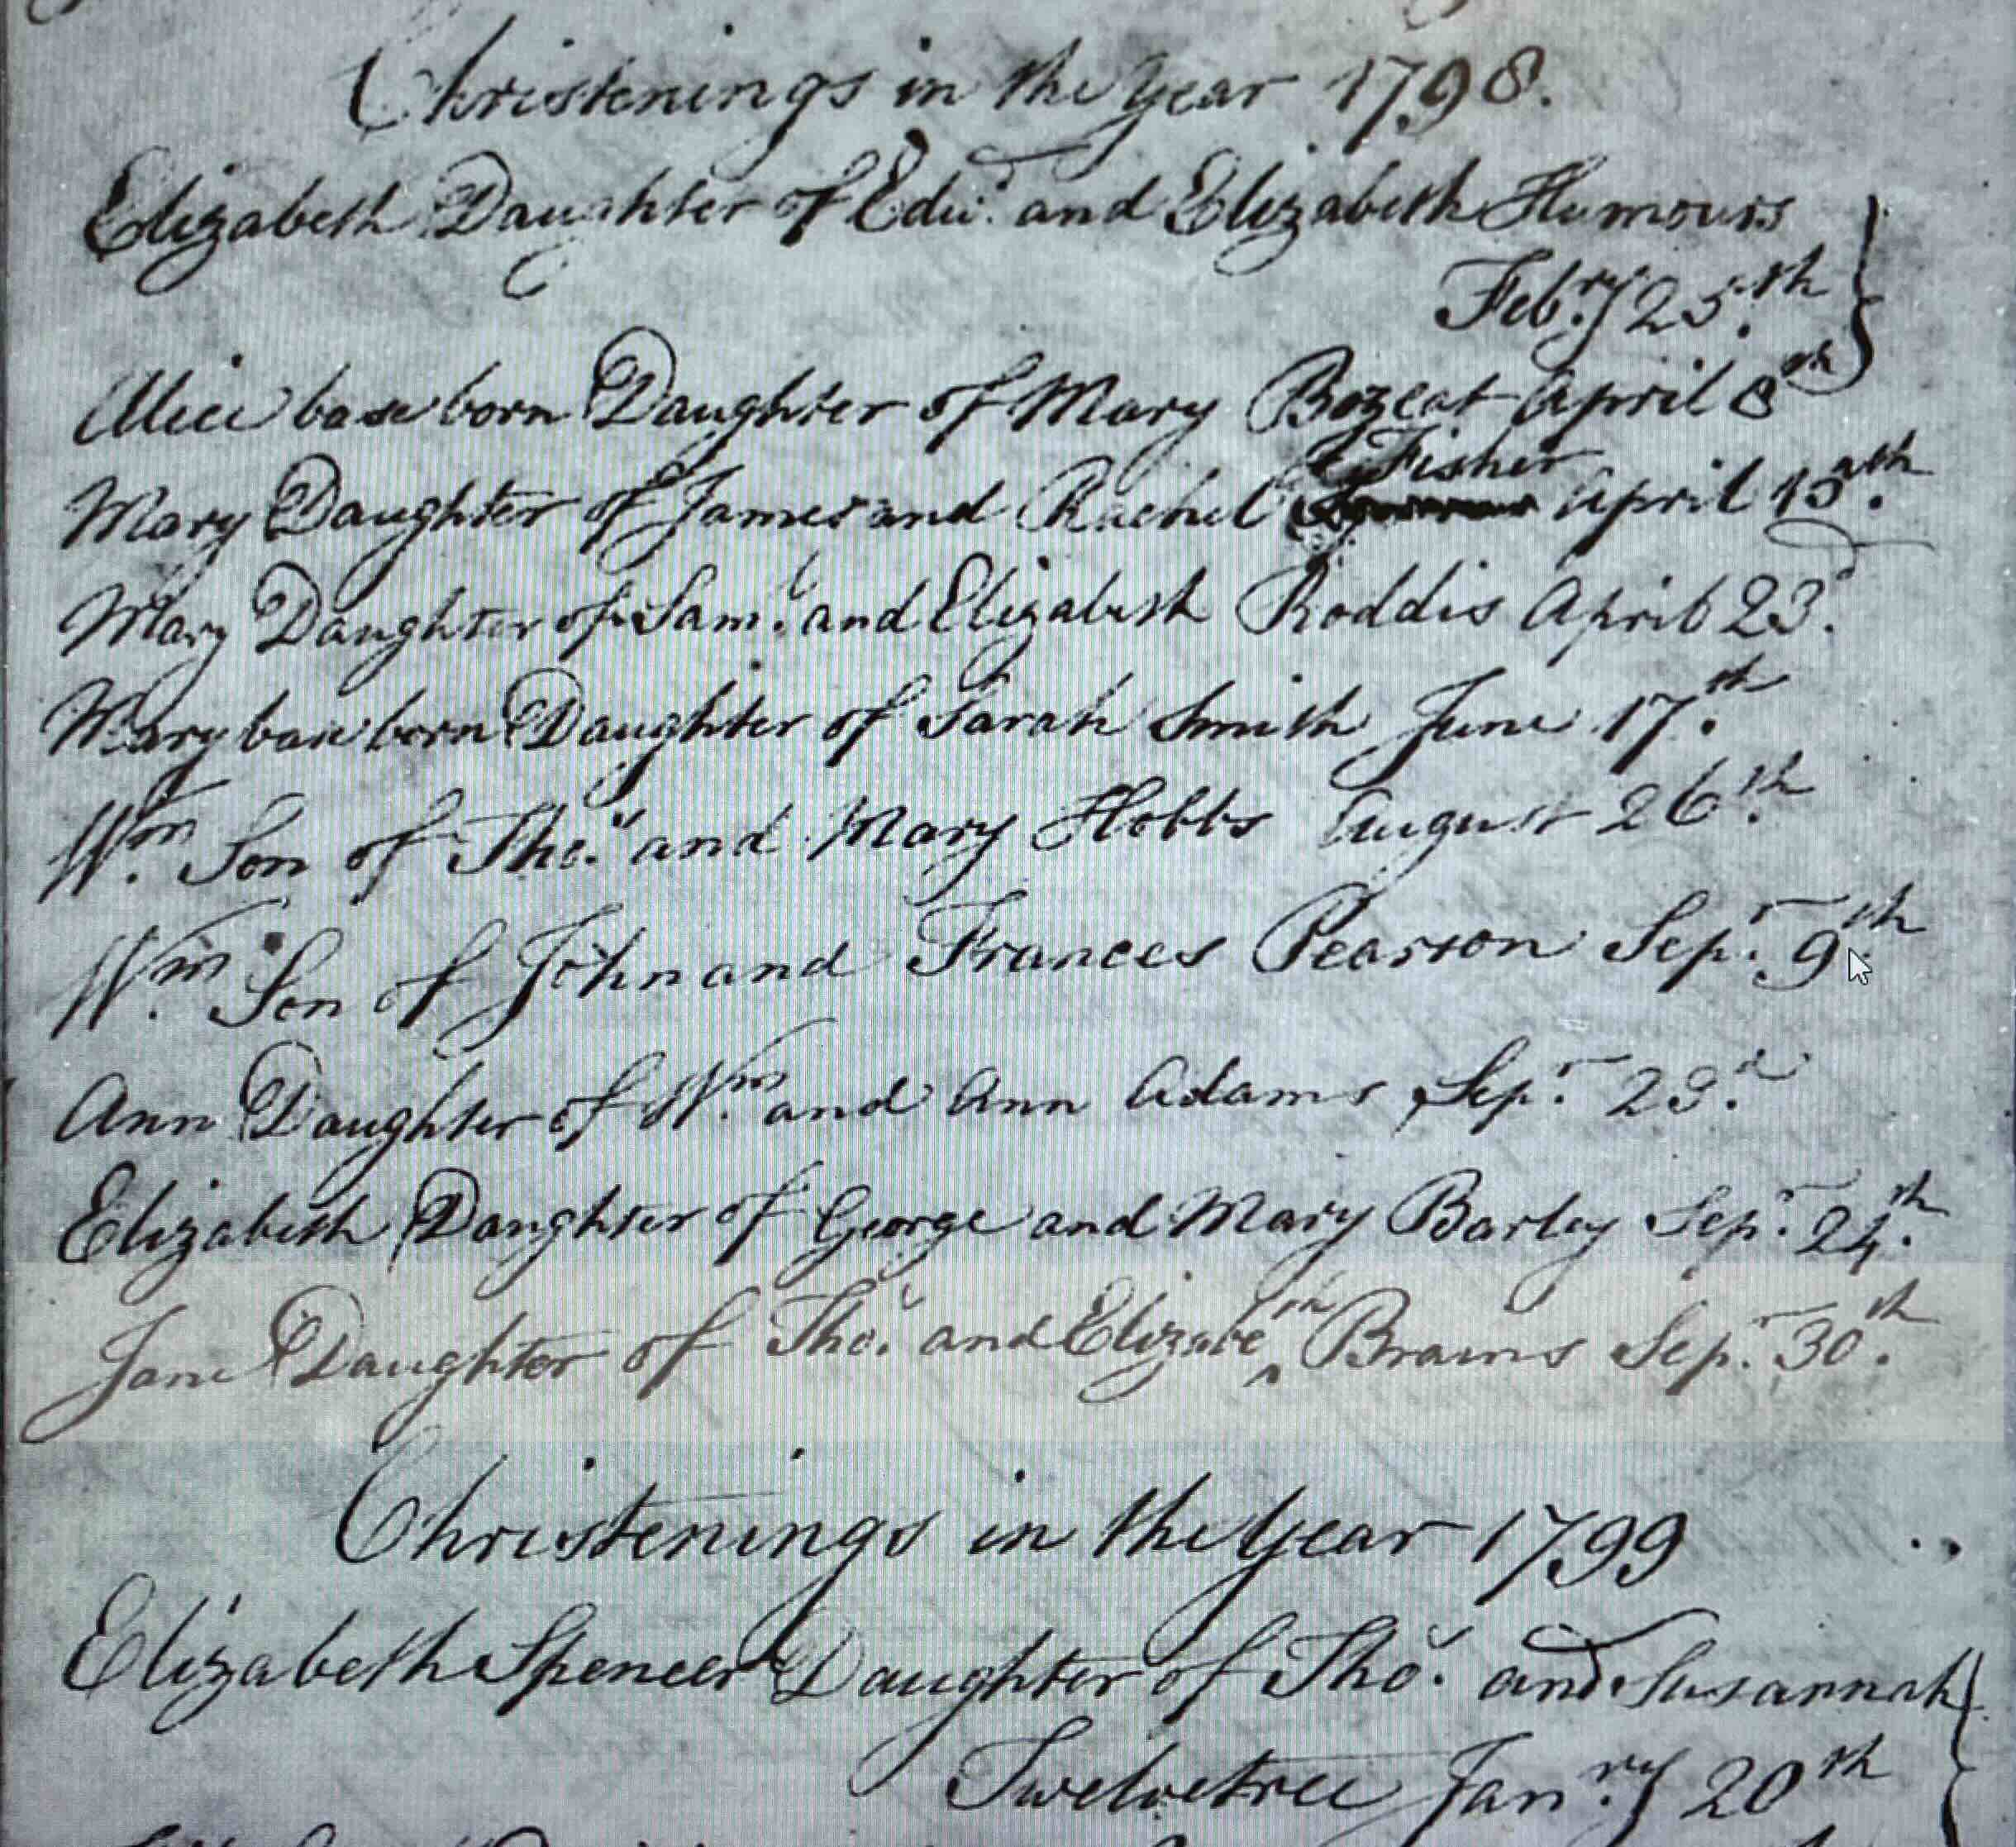 Christenings in the Year 1798.
Elizabeth Daughter of Edwd. and Elizabeth Humours
Febry. 25th.
Alice base born Daughter of Mary Bozeat April 8th
Fisher
Mary Daughter of James and Rachel April 15th.
Mary Daughter of Saml. and Elizabeth Roddis April 23d.
Mary base born Daughter of Sarah Smith June 17th.
Wm. Son of Thos. and Mary Hobbs August 26th.
Wm. Son of John and Frances Pearson Sepr. 9th
Ann Daughter of Wm. and Ann Adams Sepr. 23d.
Elizabeth Daughter of George and Mary Barley Sepr. 24th.
Jane Daughter of Thos. and Elizabeth Brains Sepr. 30th.
Christenings in the Year 1799
Elizabeth Spencer Daughter of Thos. and Susannah
Twelvetree Janry. 20th